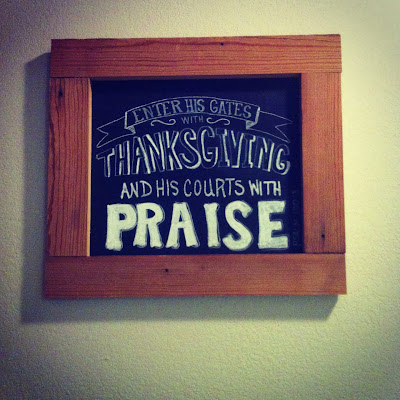 ENTER HIS GATES
WITH
THANKSGIVING
AND HIS COURTS WITH
PRAISE